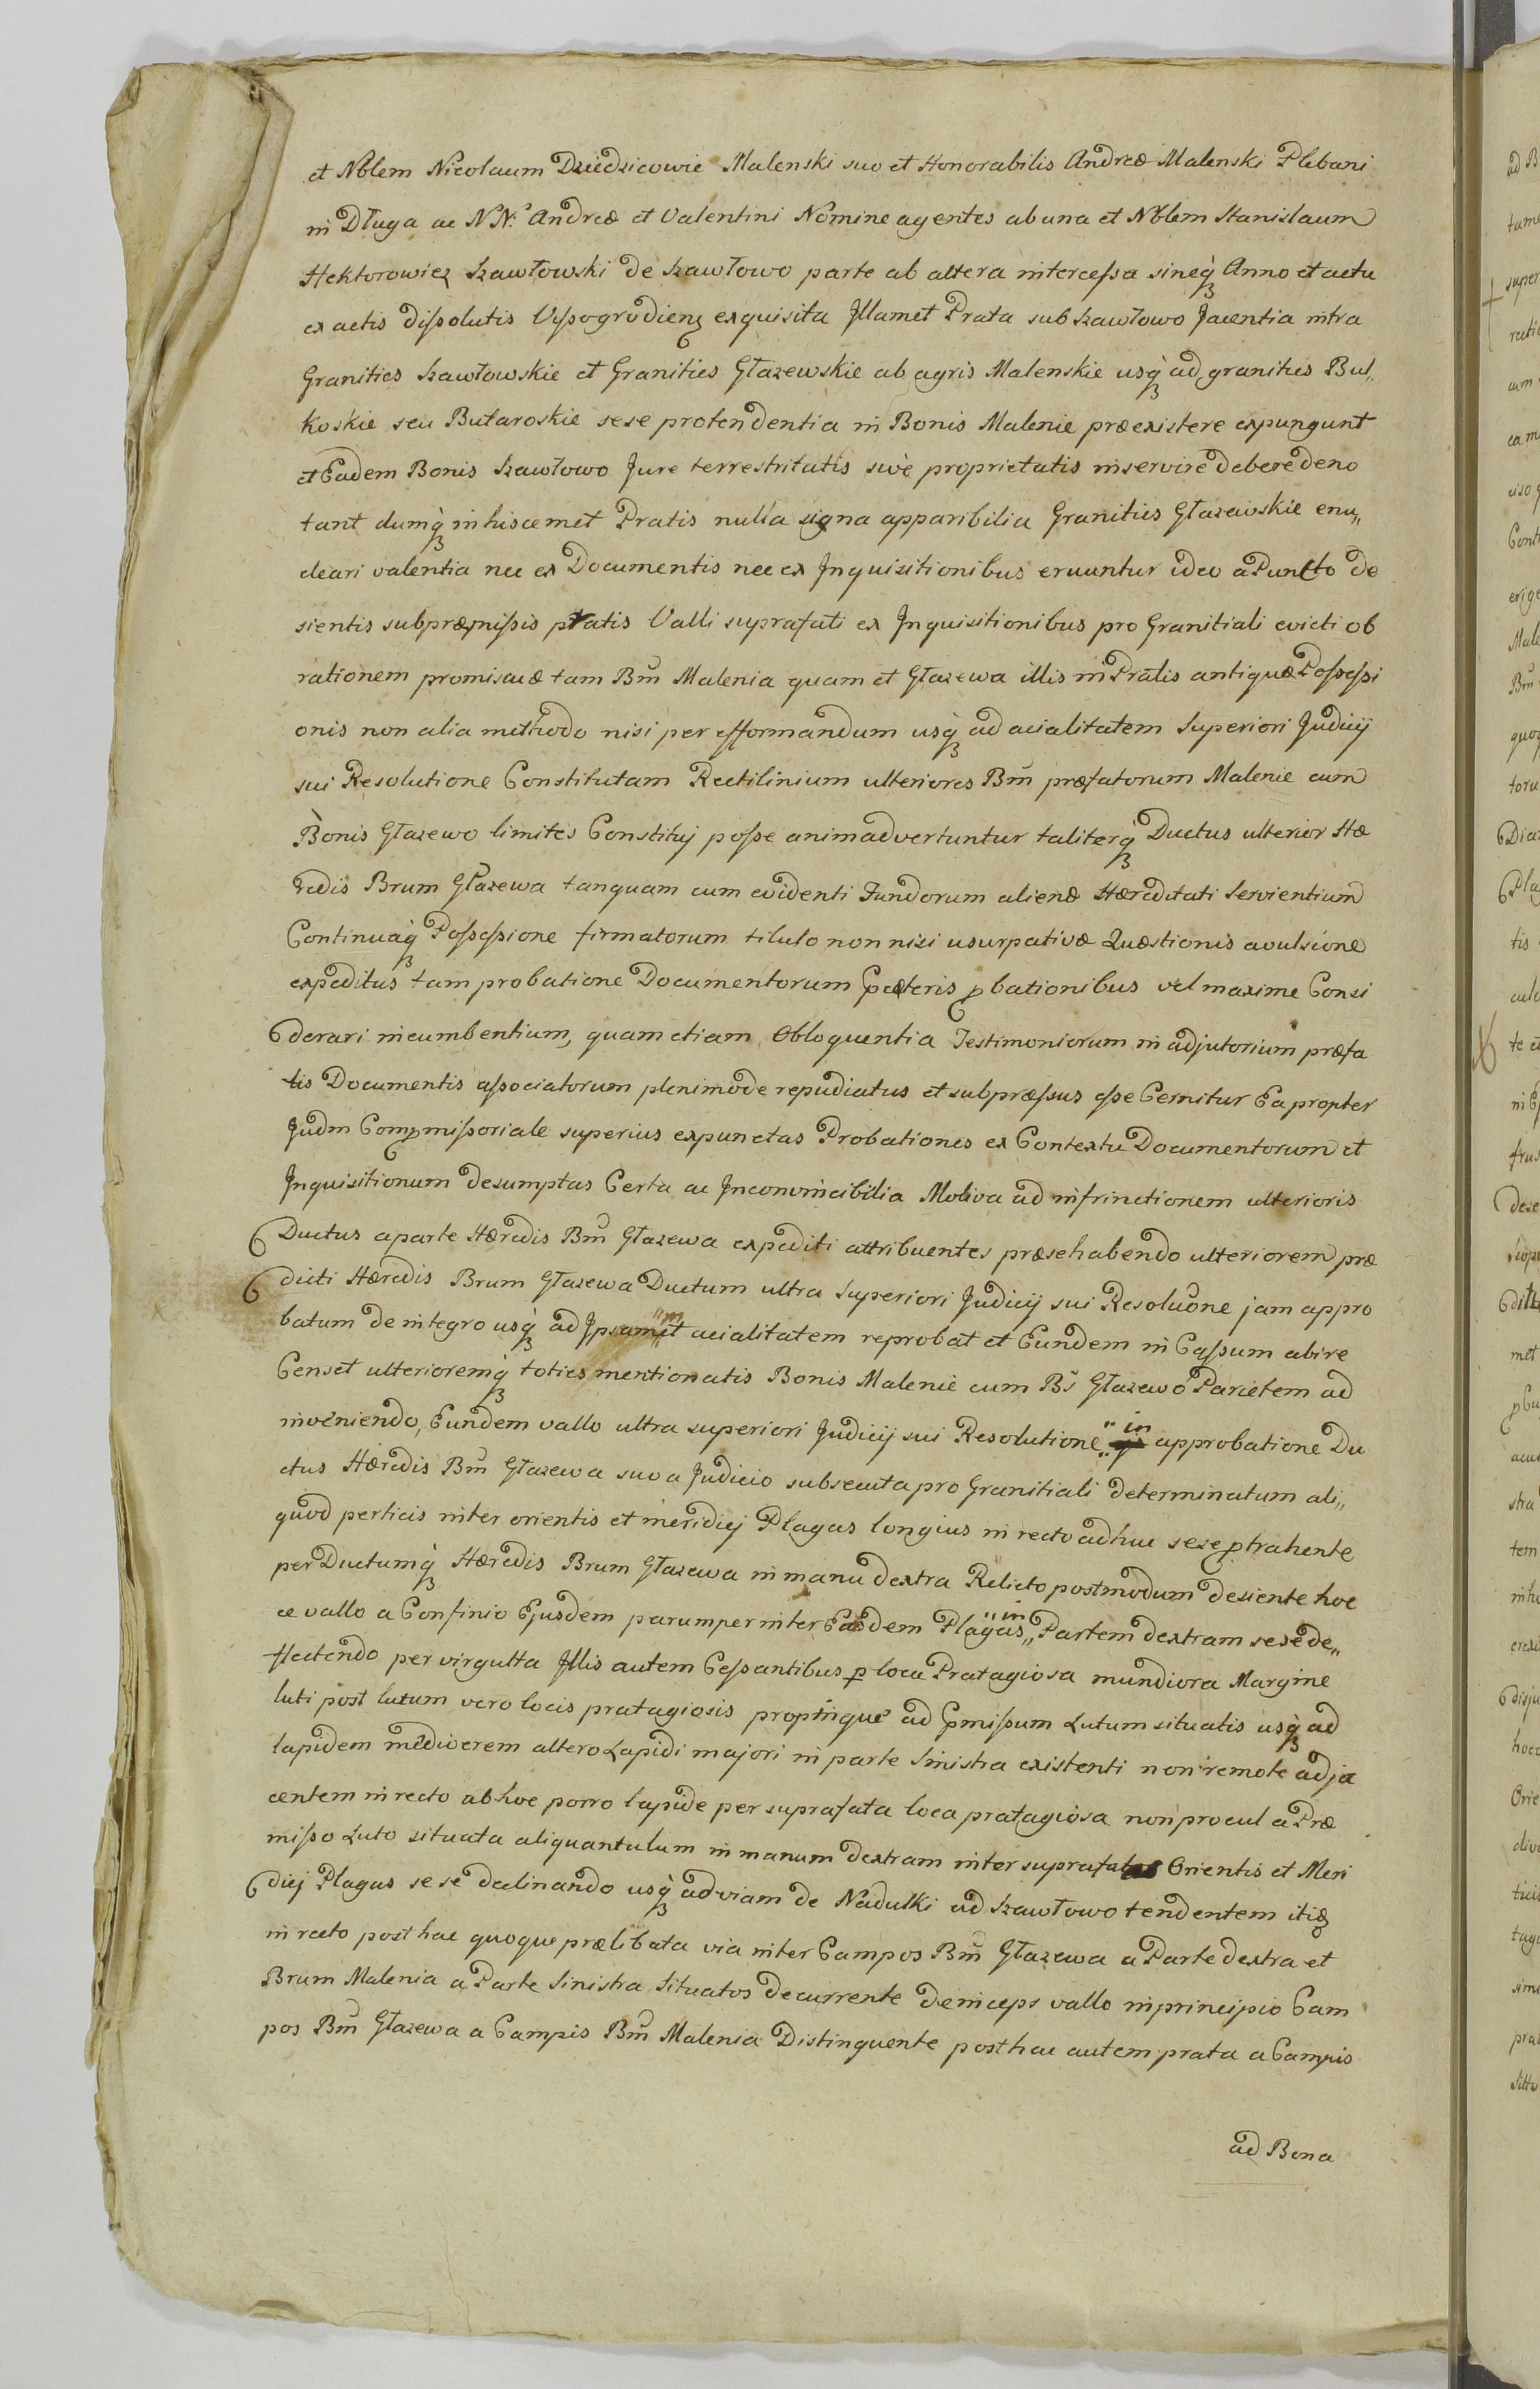 et Nblem Nicolaum Dziedzicowie Malenski suo et Honorabilis Andreæ Malenski Plebani
in Długa ac NN: Andreæ et Valentini Nomine agentes ab una et Nblem Stanislaum
Hektorowicz Szawłowski de Szawłowo parte ab altera intercessa sineq́ Anno et actu
ex actis dissolutis Vyssogrodienȝ exquisita Jllamet Prata sub Szawłowo Jacentia intra
Granities Szawłowskie et Granities Głazewskie ab agris Malenskie usq́ ad granities Bul„
koskie seu Butaroskie sese protendentia in Bonis Malenie præexistere expungunt
et Eadem Bonis Szawłowo Jure terrestritatis sivè proprietatis inservire debere deno
tant dumq́ in hiscemet Pratis nulla signa apparibilia Granities Głazewskie enu„
cleari valentia nec ex Documentis nec ex Jnquisitionibus eruuntur ideo a Puncto de
sientis subpræmissis pratis Valli suprafati ex Jnquisitionibus pro Granitiali evicti ob
rationem promiscuæ tam Bm̃ Malenia quam et Głazewa illis in Pratis antiquæ Possessi
onis non alia methodo nisi per efformandum usq́ ad acialitatem superiori Judicij
sui Resolutione Constitutam Rectilinium ulteriores Bm̃ præfatorum Malenie cum
Bonis Głazewo limites Constitui posse animadvertuntur taliterq́ Ductus ulterior Hæ
redis Brum Głazewa tanquam cum evidenti Fundorum alienæ Hæreditati Servientium
Continuaq́ Possessione firmatorum titulo non nisi usurpativæ Quæstionis avulsione
expeditus tam probatione Documentorum Cæteris ꝓbationibus vel maxime Consi
derari incumbentium, quam etiam Obloquentia Testimoniorum in adjutorium præfa
tis Documentis associatorum plenimode repudiatus et subpræssus esse Cernitur Ea propter
Judm Comꝓmissoriale superius expunctas Probationes ex Contextu Documentorum et
Jnquisitionum desumptas Certa ac Jnconvincibilia Motiva ad infrinctionem ulterioris
Ductus a parte Hæredis Bm̃ Głazewa expediti attribuentes præsehabendo ulteriorem præ
dicti Hæredis Brum Głazewa Ductum ultra superiori Judicij sui Resoluõne jam appro
batum de integro usq́ ad Jpsam„m„et acialitatem reprobat et Eundem in Cassum abire
Censet ulterioremq́ toties mentionatis Bonis Malenie cum Bs̃ Głazewo Parietem ad
inveniendo, Eundem vallo ultra superiori Judicij sui Resolutione „in„ approbatione Du
ctus Hæredis Bm̃ Głazewa suo a Judicio subsecuta pro Granitiali determinatum ali„
quod perticis inter orientis et meridiej Plagas longius in recto adhuc sese ꝓtrahente
per Ductumq́ Hæredis Brum Głazewa in manu dextra Relicto postmodum desiente hoc
ce vallo a Confinio Ejusdem parumper inter Easdem Plagas „in„ Partem dextram sese de„
flectendo per virgulta Jllis autem Cessantibus ꝑ loca Pratagiosa mundiora Margine
luti post lutum vero locis pratagiosis propinque ad Ꝑmissum Lutum situatis usq́ ad
lapidem mediocrem altero Lapidi majori in parte Sinistra existenti non remote adja
centem in recto ab hoc porro lapide per suprafata loca pratagiosa non procul a Præ
misso Luto situata aliquantulum in manum dextram inter suprafatas Orientis et Meri
diej Plagas sese declinando usq́ ad viam de Nadułki ad Szawłowo tendentem itiȝ
in recto post hac quoque prælibata via inter Campos Bm̃ Głazewa a Parte dextra et
Brum Malenia a Parte Sinistra Situatos decurrente deniceps vallo in principio Cam
pos Bm̃ Głazewa a Campis Bm̃ Malenia Distinguente posthac autem prata a Campis
ad Bona